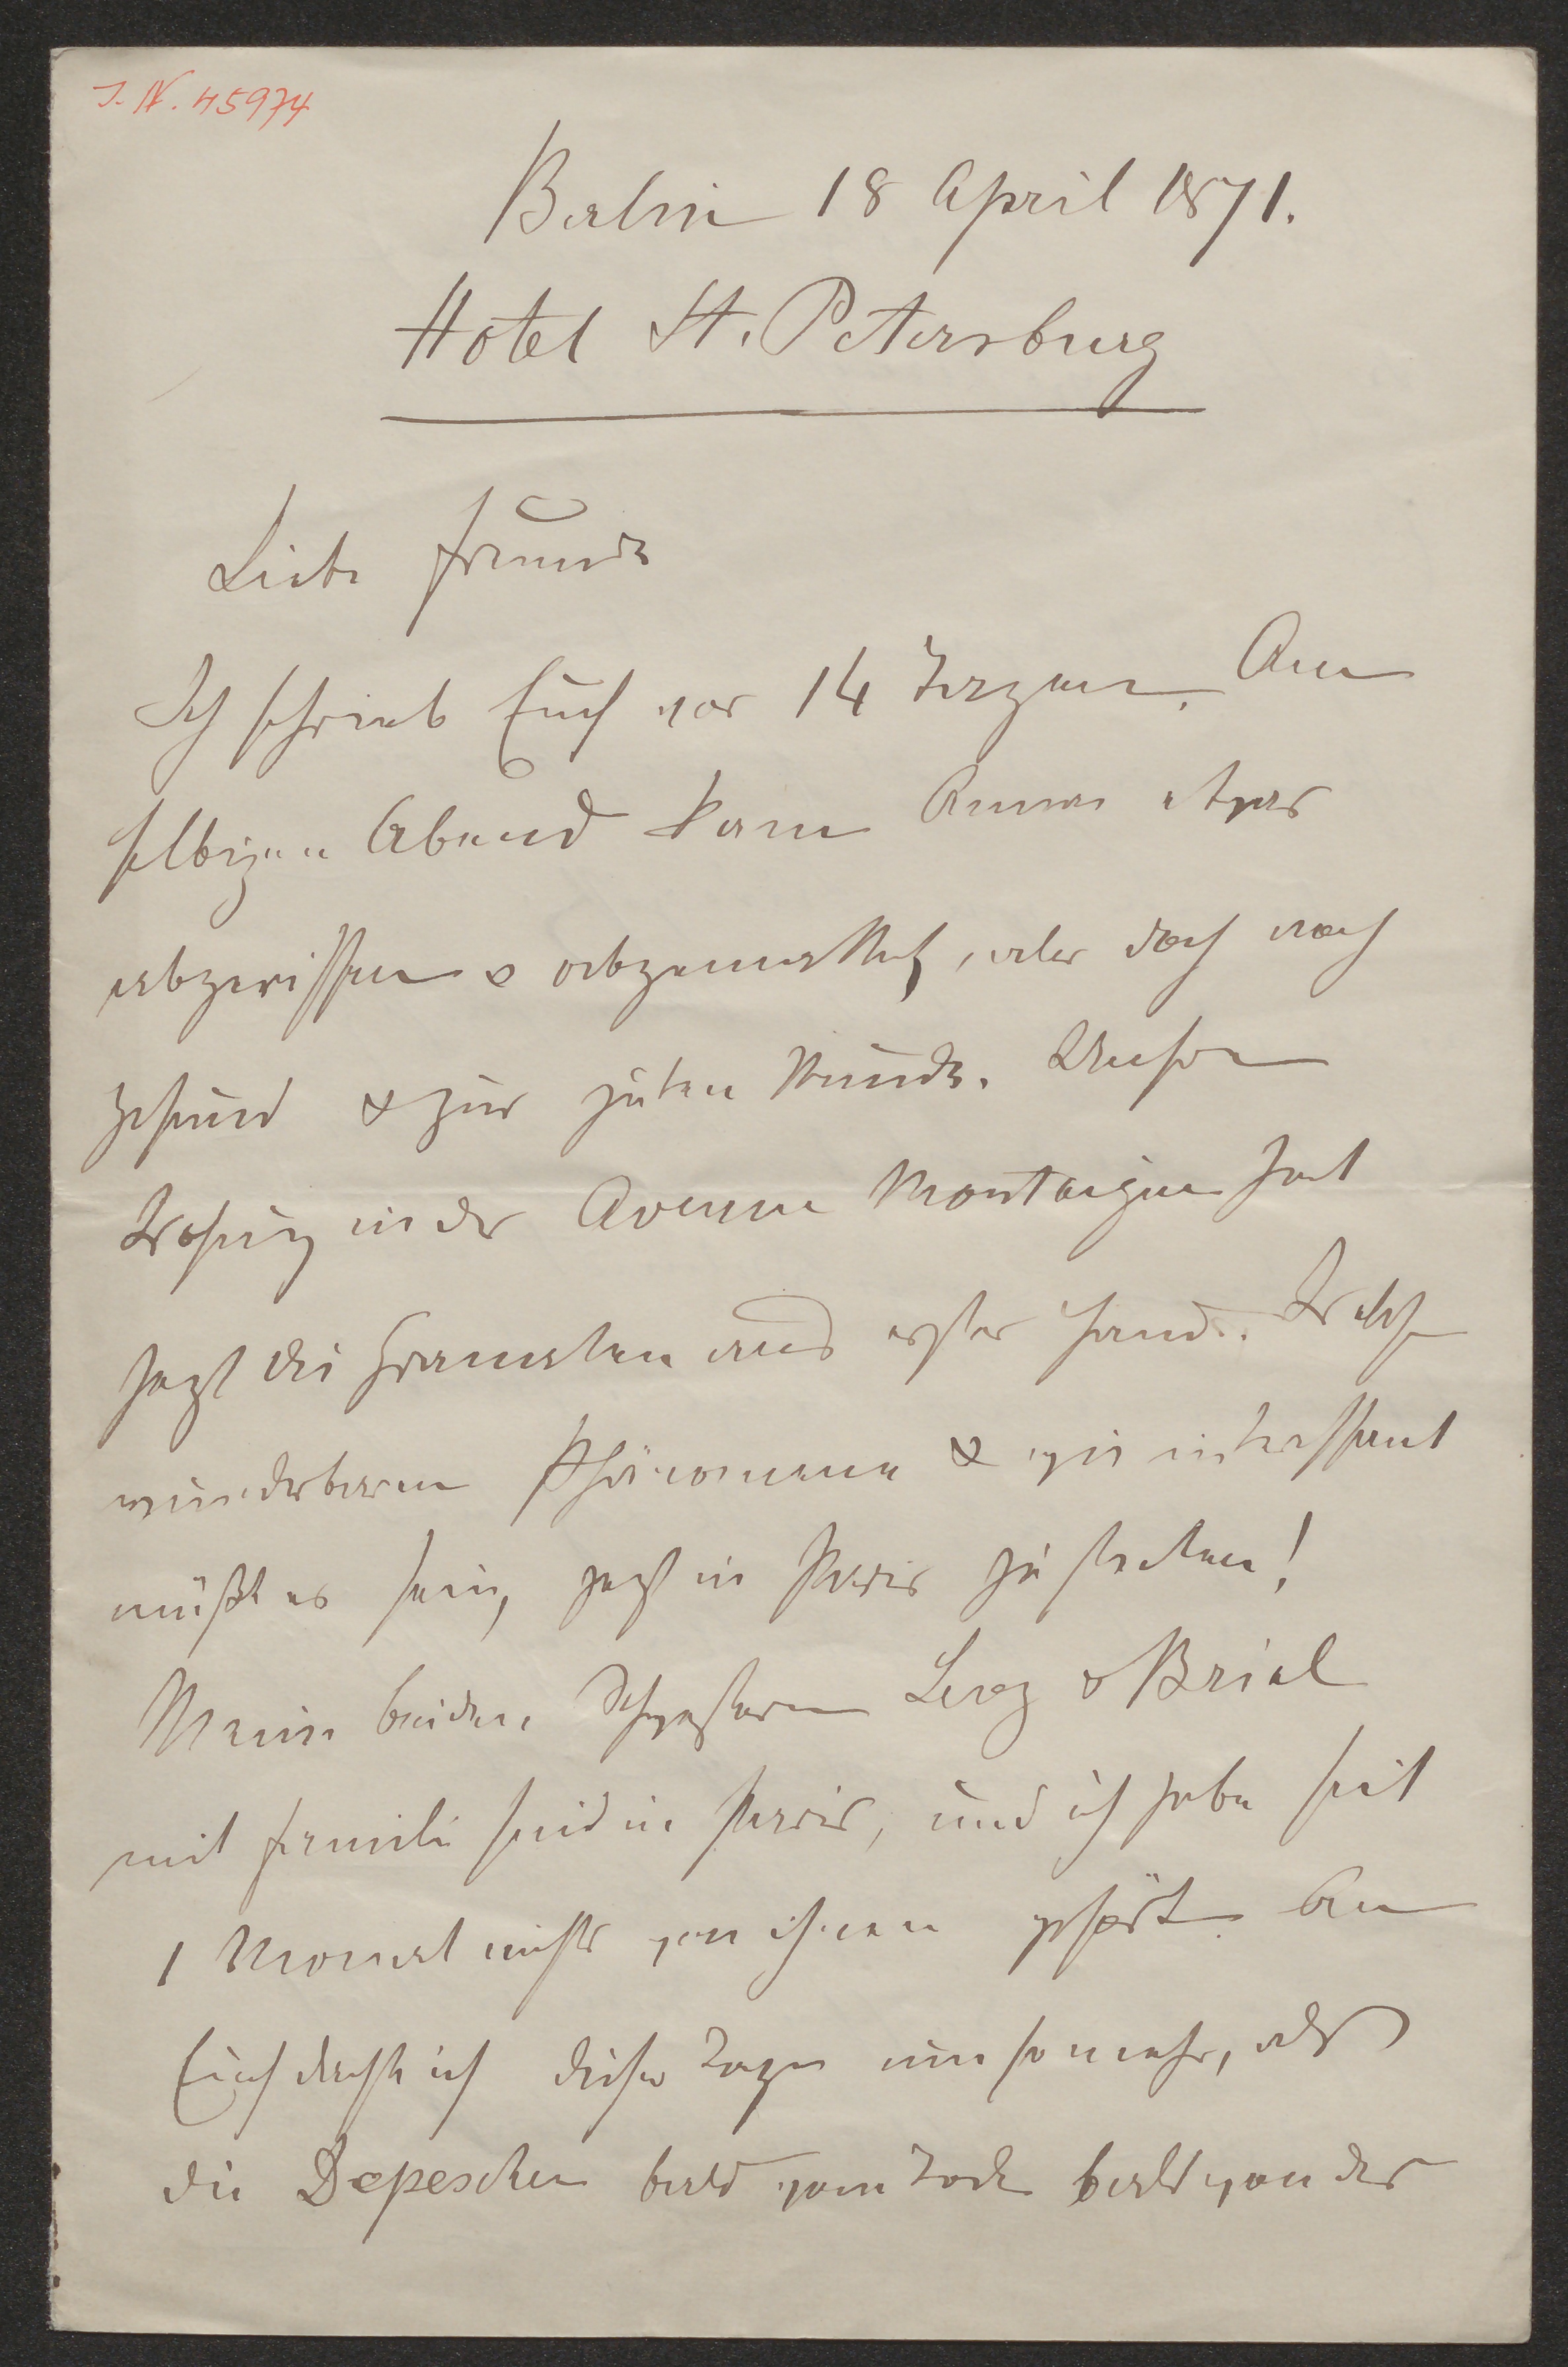 I. N. 45974
Berlin 18 April 1871.
Hotel St. Petersburg
Liebe Freunde
Ich schrieb Euch vor 14 Tagen. Am
selbigen Abend kam Anna etwas
abgerissen & abgemattet, aber doch noch
gesund & zur guten Stunde. Unsre
Wohung in der Avenue Montaigne hat
jezt die Granaten aus erster Hand. Welche
wunderbaren Phänomene & wie interessant
müßt es sein, jezt in Paris zu stecken!
Meine beiden Schwestern & Brial
mit Familie sind in Paris, und ich habe seit
1 Monat nichts von ihnen gehört. An
Euch dachte ich diese Tage um so mehr, als
die Depeschen bald vom Tode bald von der